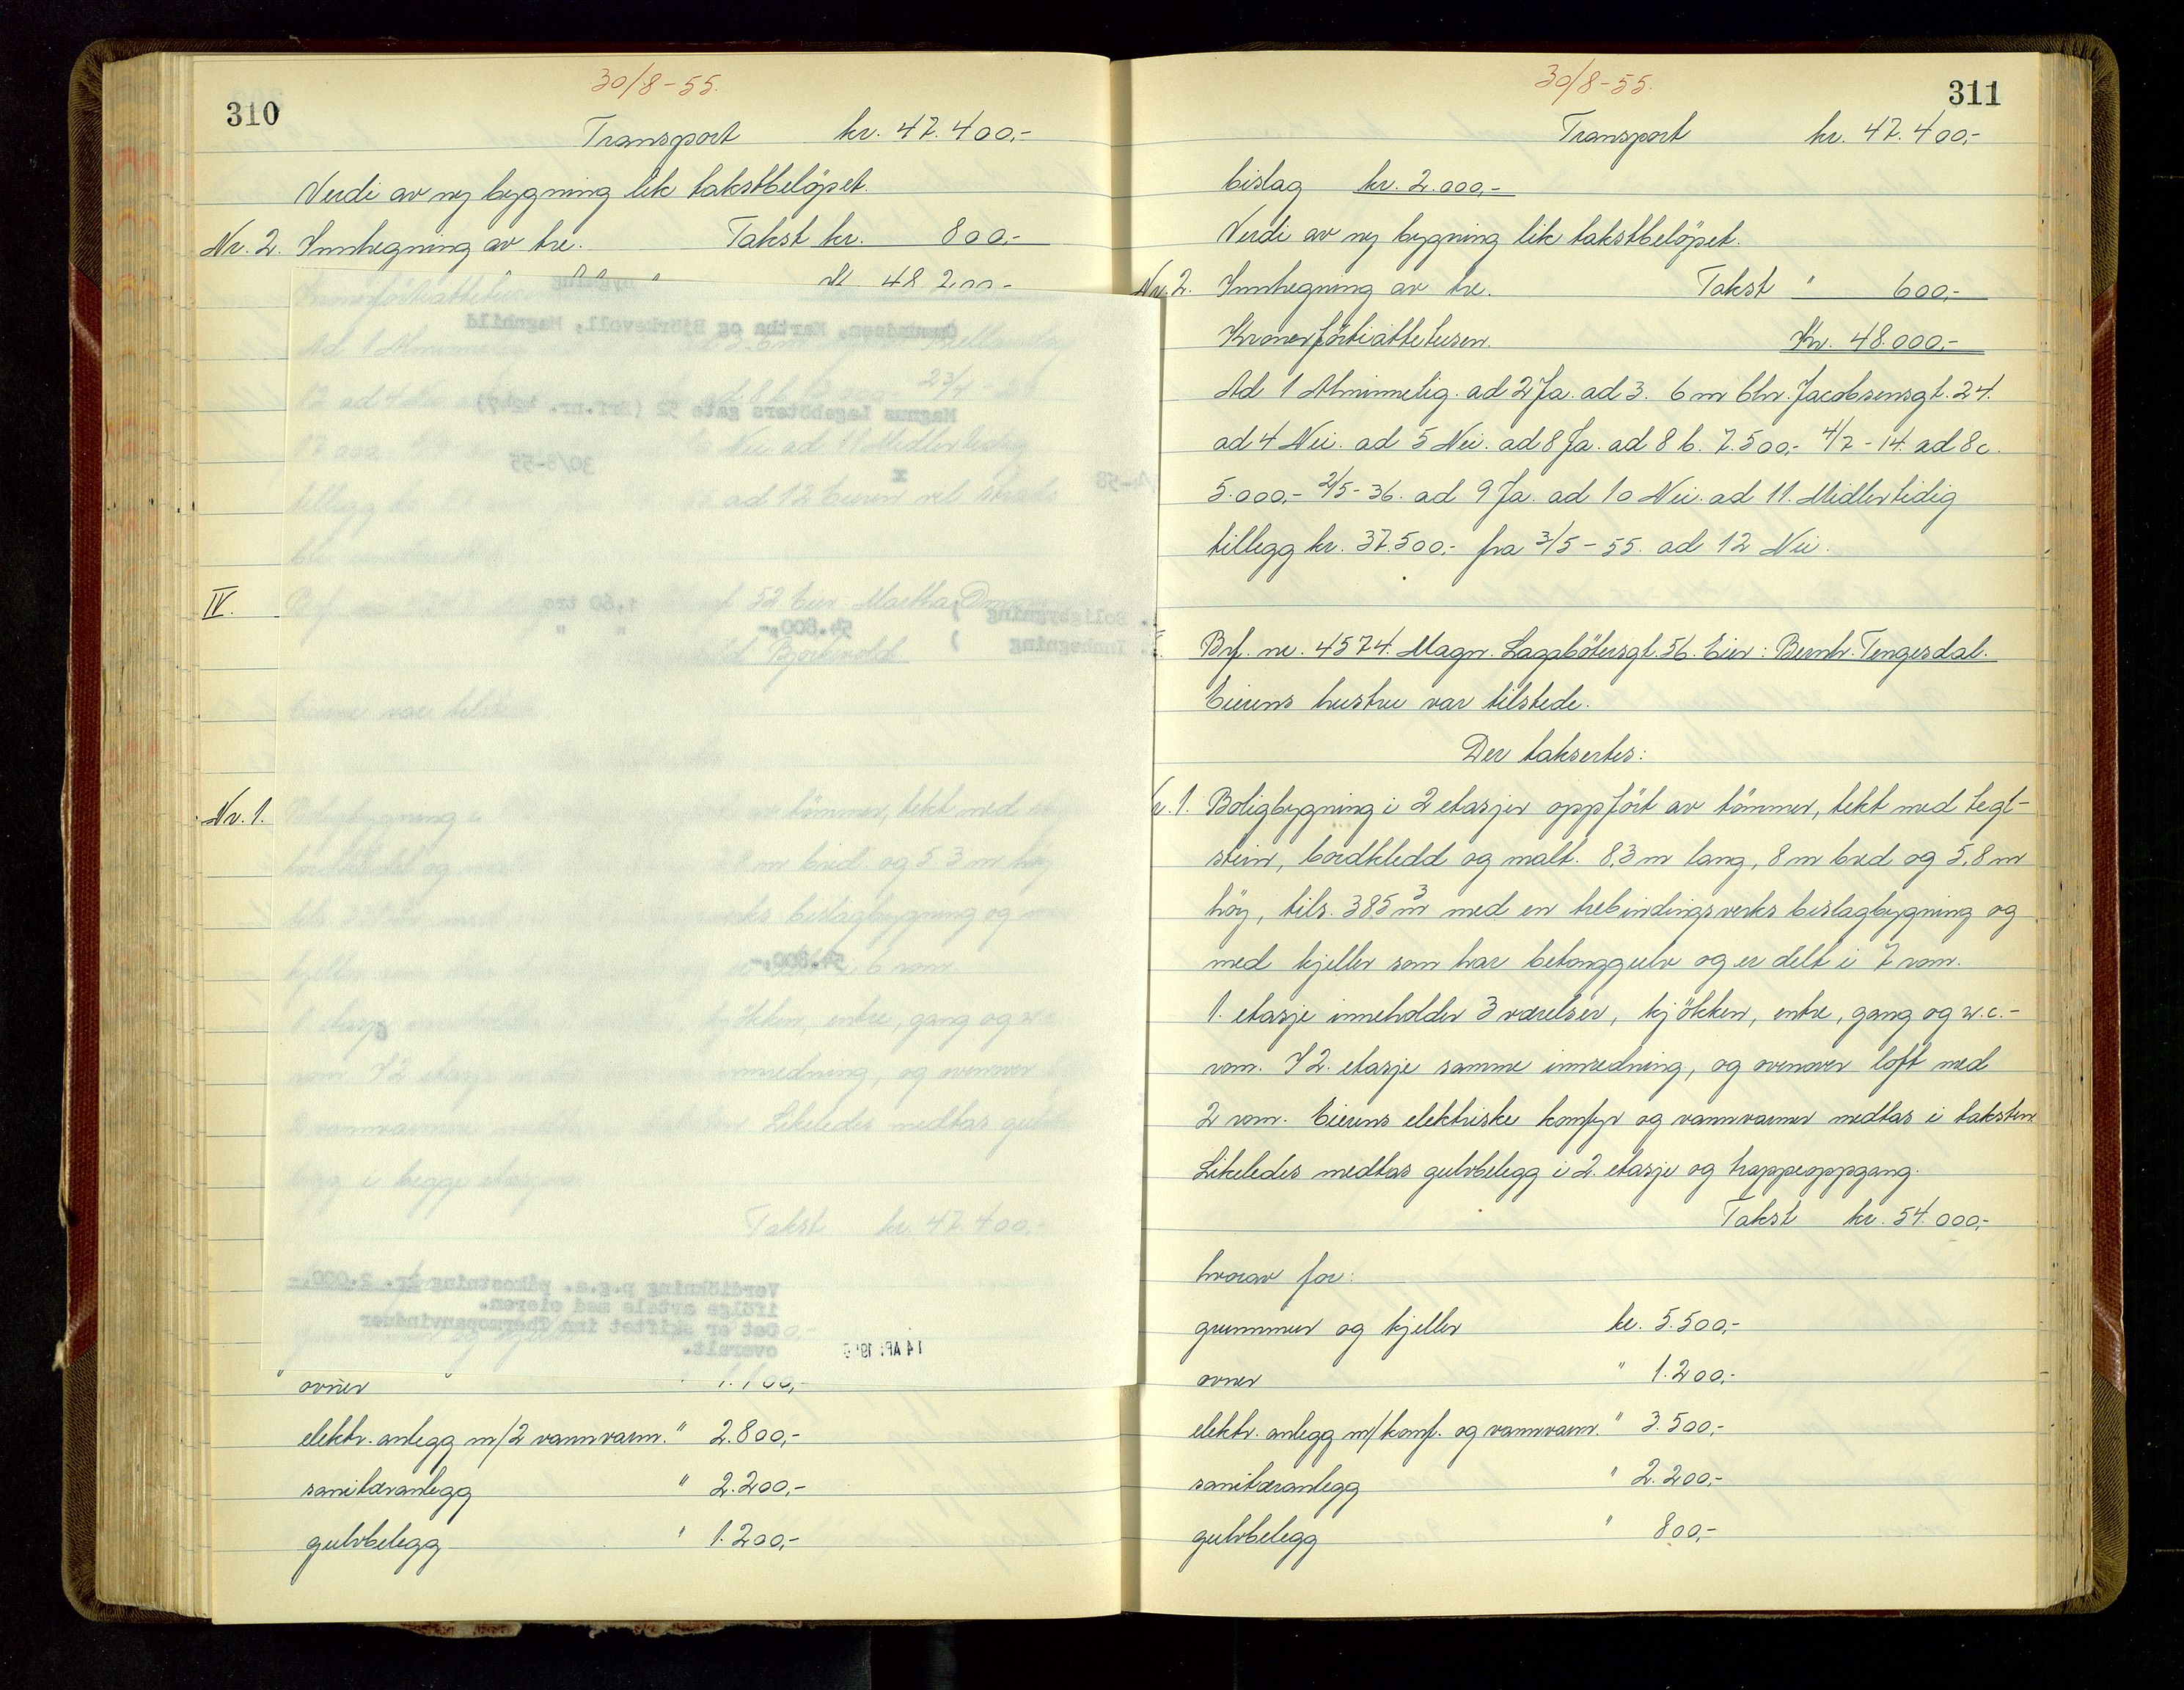 310
30/8-55.
Transport kr. 47.400,-
Verdi av ny bygning lik takstbelöpet.
Nr. 2. Innhegning av tre. Takst kr. 800,-
48.200,-
Gundersen, Martha og Björkevoll, Magnhild
Ad 1 Alminnelig
Magnus Lagabøters gate 52
30/8-55
x
ad 10 Nei ad 11 Midlertidig
tillegg ad 12 Eieren vel
IV. 52 Eier Martha
Boligbygning ) 1,60 tre
Innhegning ) 54.800,- " "
Eieren var tilstede
Nr. 1. Boligbygning i av tömmer, tekt med
8 m bred og 5.3 m høy
bislagbygning og
54.800,-
kjeller 6 rom.
1 etasje kjökken, entre, gang og w.c.
rom. I 2. etasje innredning, og ovenover
2 vannvarmere Likeledes medtas gulv-
belegg i begge etasjer
Takst kr. 47.400,-
Verdiökning p.g.a. påkostning kr. 2.000,-
ifölge avtale med eieren.
Det er skiftet inn Thermopanvinduer
overalt.
" ovner " 1.100,-
elektr. anlegg m/2 vannvarm. " 2.800,-
sanitæranlegg " 2.200,-
gulvbelegg " 1.200,-
311
30/8-55.
Transport kr. 47.400,-
bislag kr. 2.000,-
Verdi av ny bygning lik takstbelöpet.
Nr. 2. Innhegning av tre. Takst " 600,-
Kronerförtiåttetusen. Kr. 48.000,-
Ad 1 Alminnelig. ad 2 Ja. ad 3. 6 m Chr. Jacobsensgt. 24.
ad 4 Nei. ad 5 Nei. ad 8 Ja. ad 8 b. 7.500,- 4/7-14. ad 8c.
5.000,- 2/5-36. ad 9 Ja. ad 10 Nei. ad 11. Midlertidig
tillegg kr. 37.500,- fra 3/5-55. ad 12 Nei.
Brf. nr. 4574. Magn. Lagabötersgt. 56. Eier: Bernh. Tengesdal.
Eierens hustru var tilstede.
Der taksertes:
Nr. 1. Boligbygning i 2 etasjer oppfört av tömmer, tekt med tegl-
stein, bordkledd og malt. 8,3 m lang, 8 m bred og 5,8 m
höy, tils. 385 m³ med en trebindingsverks bislagbygning og
med kjeller som har betonggulv og er delt i 7 rom.
1. etasje inneholder 3 værelser, kjökken, entre, gang og w.c.-
rom. I 2. etasje samme innredning, og ovenover loft med
2 rom. Eierens elektriske komfyr og vannvarmer medtas i taksten
Likeledes medtas gulvbelegg i 2. etasje og trappeoppgang.
Takst kr. 54.000,-
hvorav for:
grunnmur og kjeller kr. 5.500,-
ovner " 1.200,-
elektr. anlegg m/komf. og vannvarm. " 3.500,-
sanitæranlegg " 2.200,-
gulvbelegg " 800,-